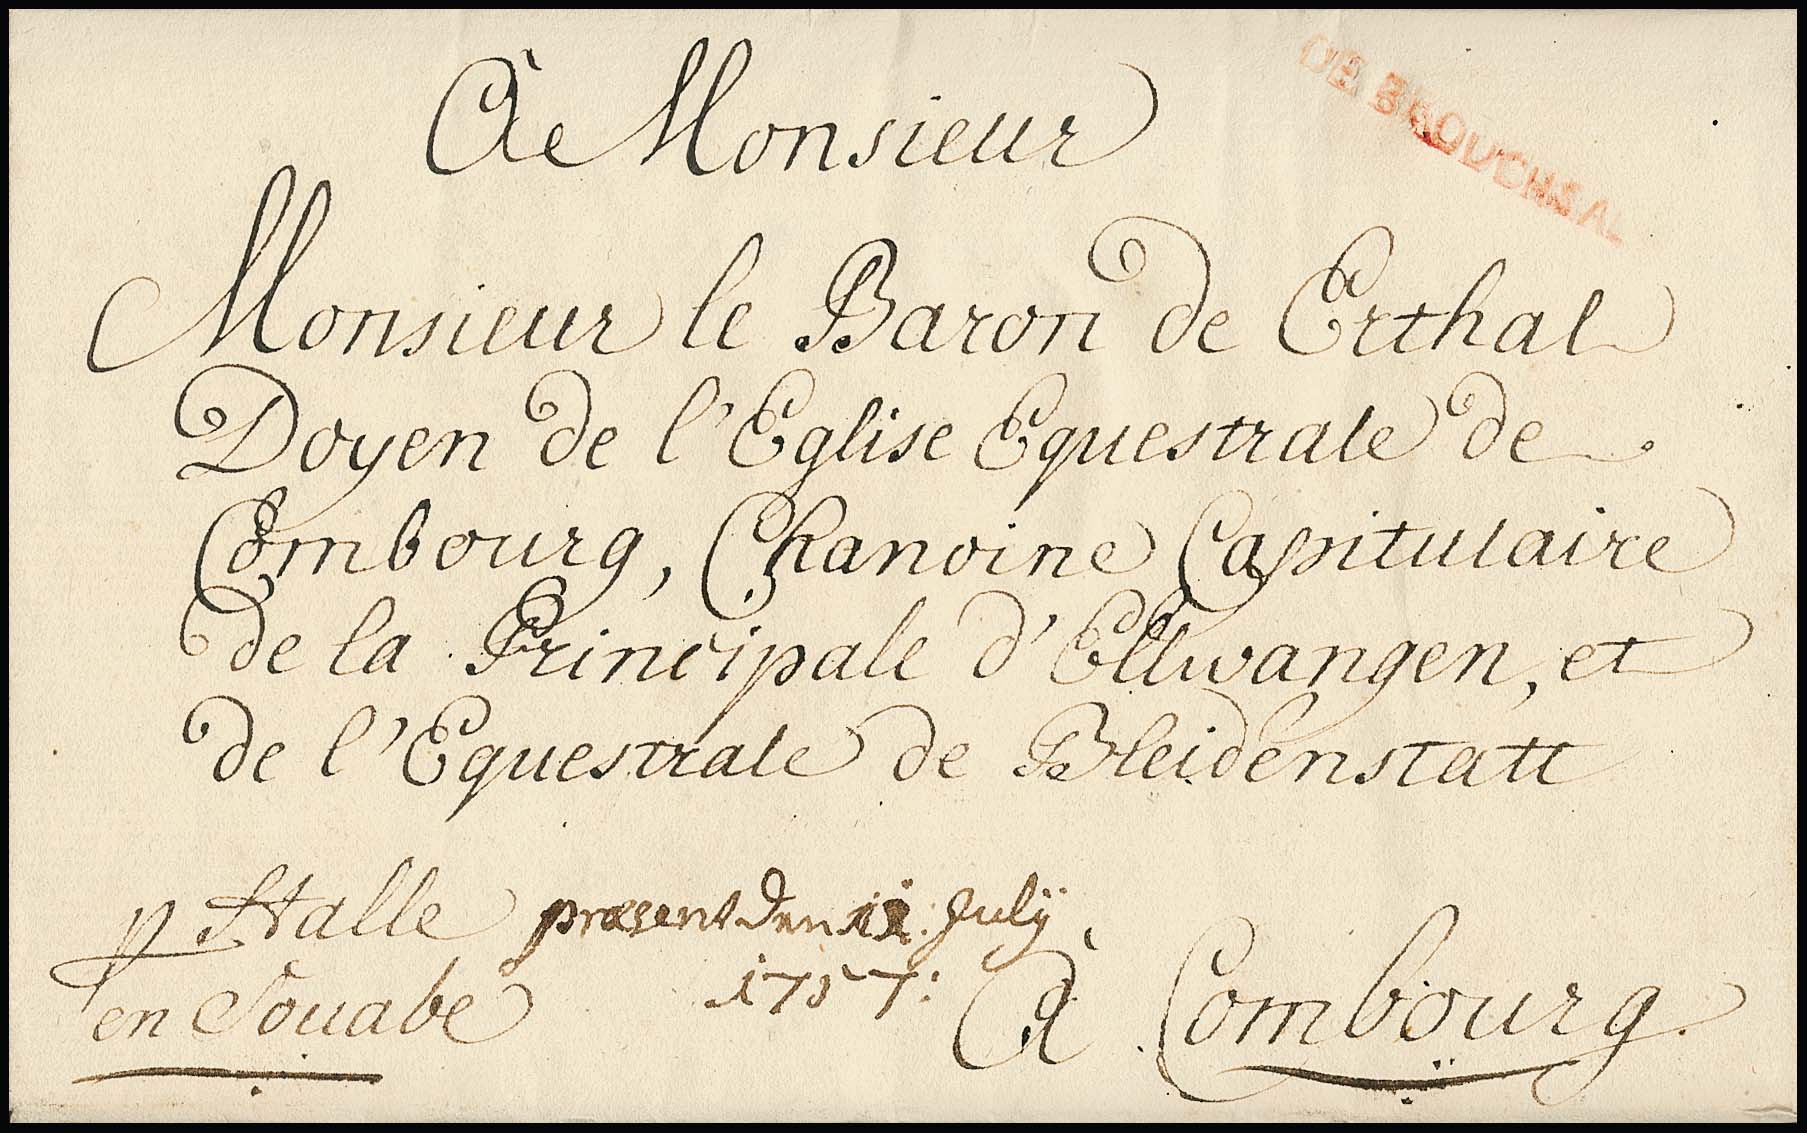 DE BROUCHSAL
A Monsieur
Monsieur le Baron de Erthal
Doyen de l'Eglise Equestrale de
Combourg, Chanoine Capitulaire
de la Principale d'Ellwangen, et
de l'Equestrale de Bleidenstatt
p Halle
en Souabe
præsent den july
1757:
à Combourg.